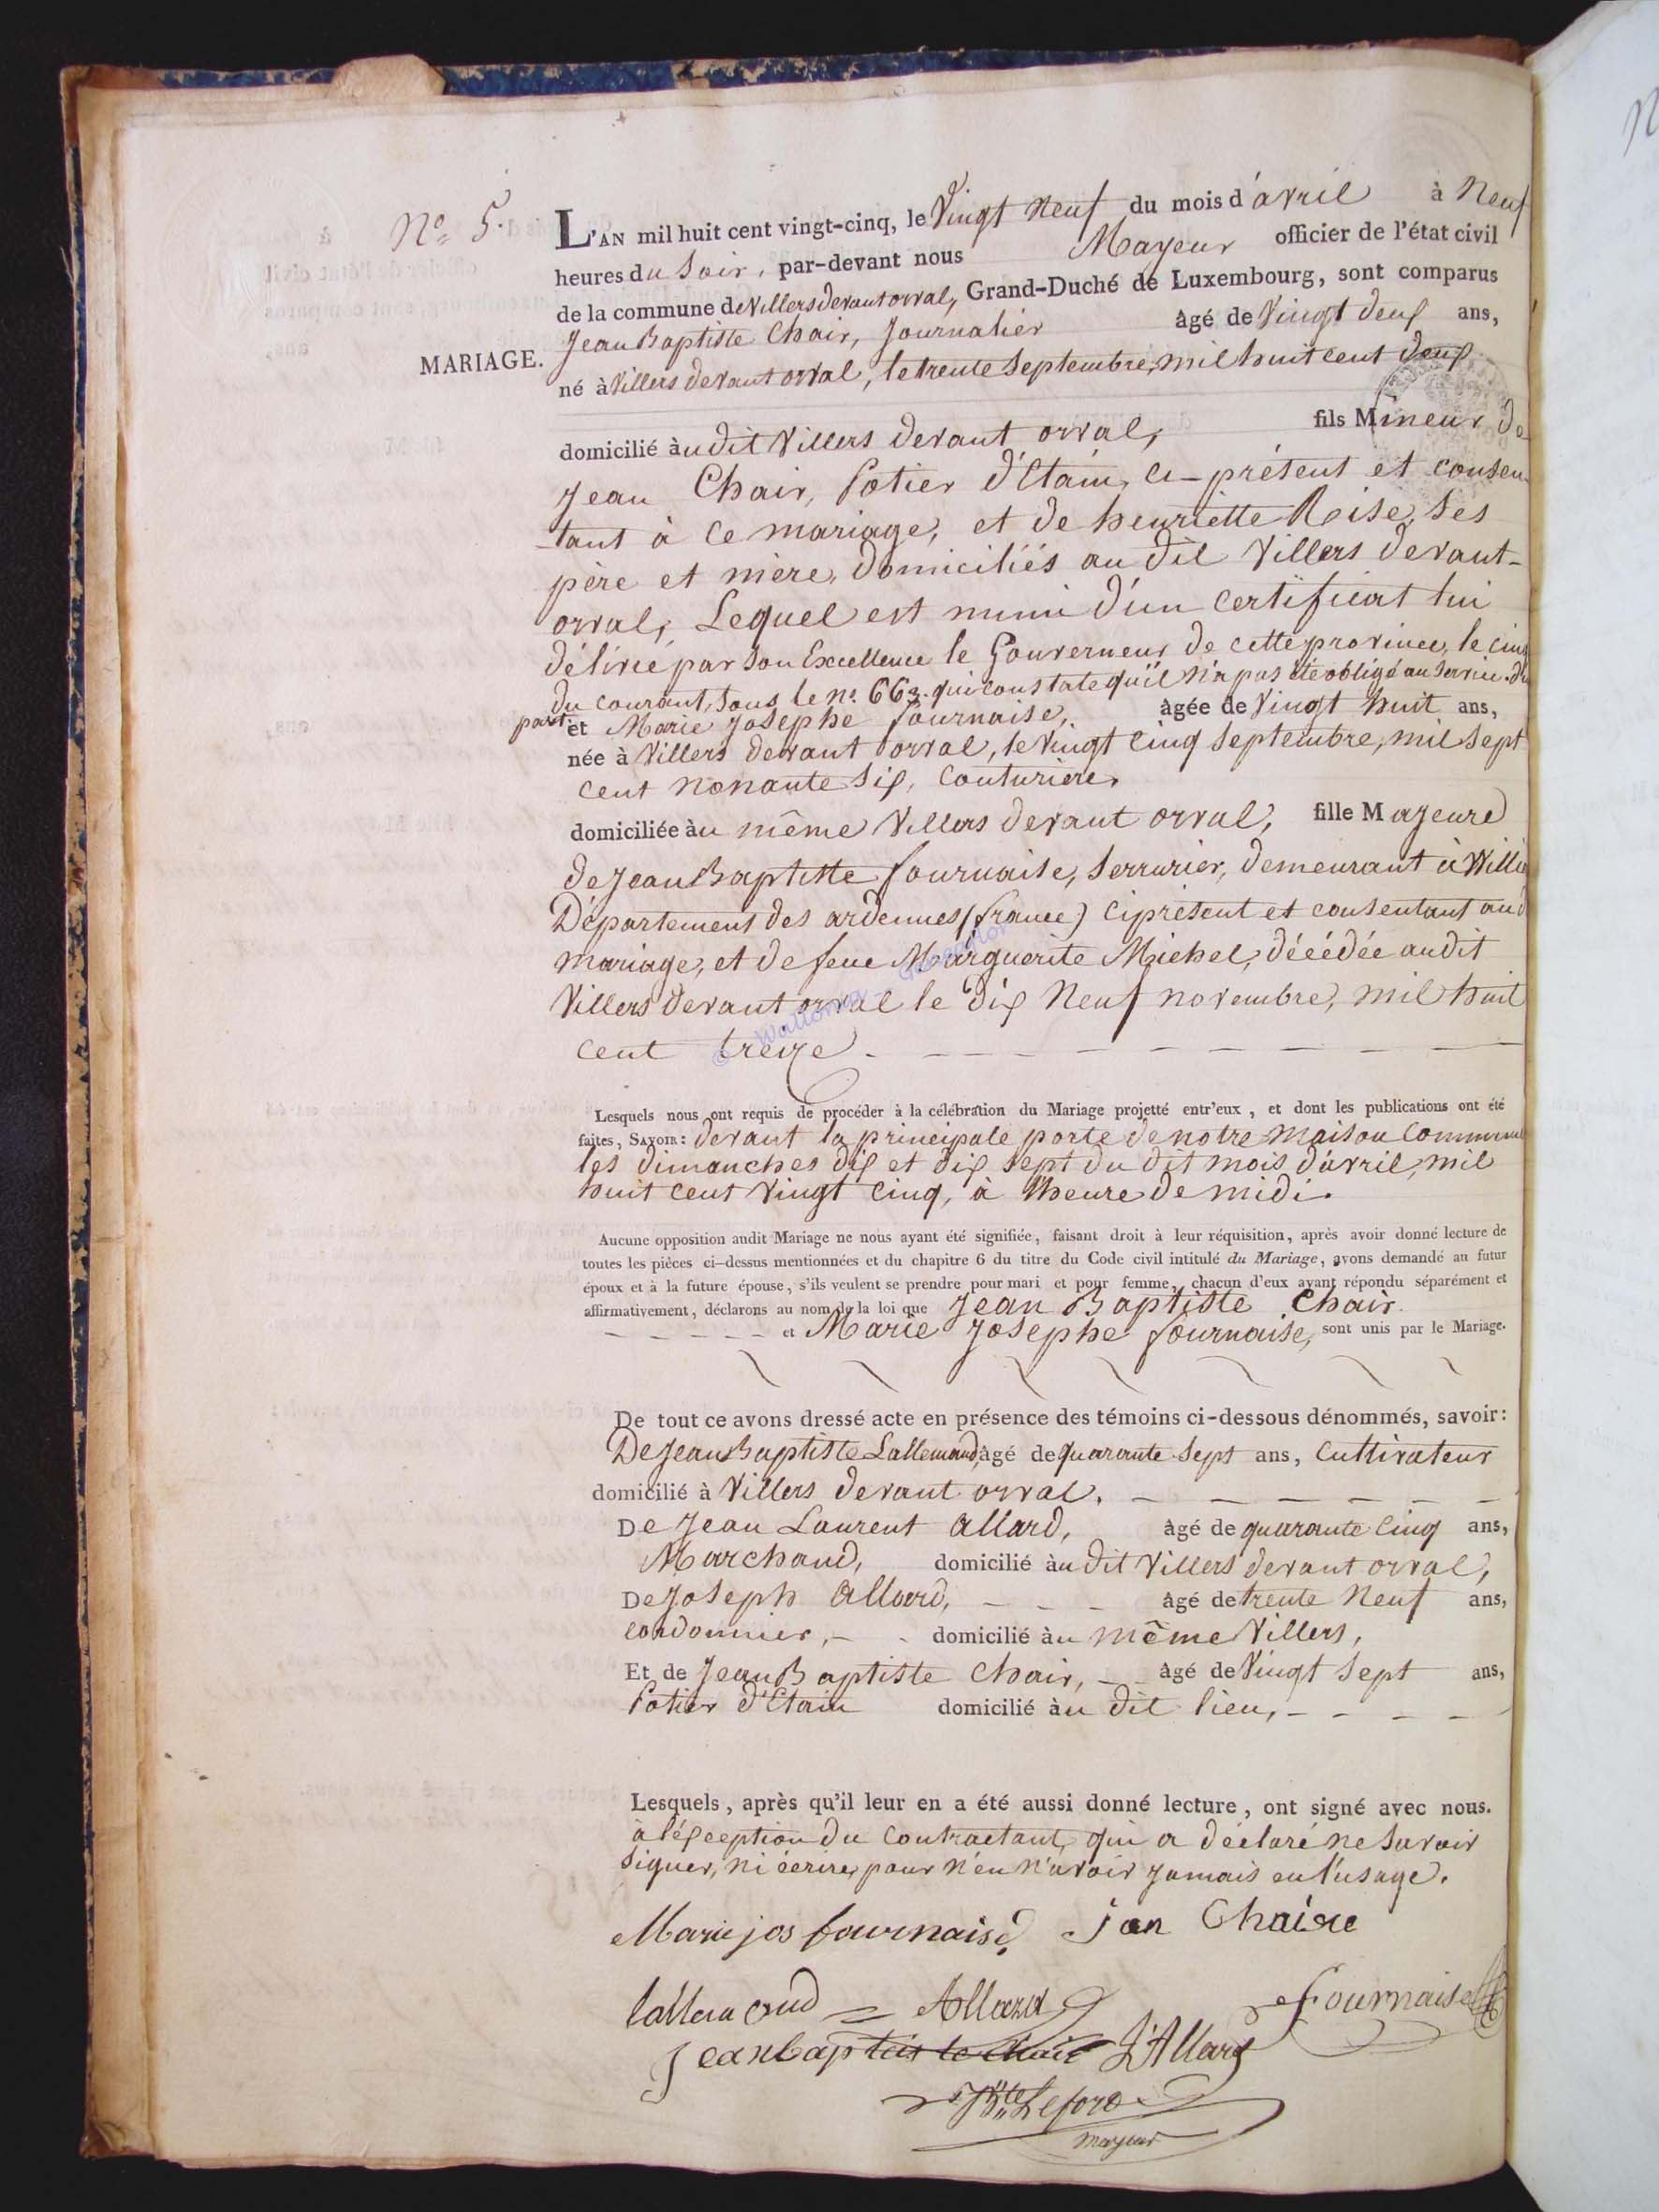 N° 5.
L'AN mil huit cent vingt-cinq, le Vingt Neuf du mois d'avril à Neuf
heures du Soir, par-devant nous Mayeur officier de l'état civil
de la commune de Villers devant orval, Grand-Duché de Luxembourg, sont comparus
Jean Baptiste Chair, Journalier âgé de Vingt deux ans,
MARIAGE.
né à Villers devant orval, le trente Septembre, mil huit cent deux
domicilié àu dit Villers devant orval, fils Mineur de
Jean Chair, Potier d'Etain, ci-présent et consen
-tant à ce mariage, et de henriette Roise, Ses
père et mère, domiciliés au dit Villers devant-
orval, Lequel est muni d'un certificat lui
délivré par Son Excellence le Gouverneur de cette province, le cinq
du courant, Sous le n° 663. qui constate qu'il n'a pas été obligé au Service. d'u
part.
et Marie Josephe fournaise, âgée de Vingt huit ans,
née à Villers devant orval, le Vingt cinq Septembre, mil Sept
cent nonante Six, Couturière,
domiciliée àu même Villers devant orval, fille Majeure
de Jean Baptiste fournaise, Serrurier, demeurant à
Département des ardennes (france) ci présent et consentant aud
mariage, et de feue Marguerite Michel, décédée audit
Villers devant orval le dix Neuf novembre, mil huit
cent treize.
Lesquels nous ont requis de procéder à la célébration du Mariage projetté entr'eux, et dont les publications ont été
faites, SAVOIR: devant la principale porte de notre maison Commune
les dimanches dix et dix sept du dit mois d'avril, mil
huit cent Vingt cinq, à l'heure de midi.
Aucune opposition audit Mariage ne nous ayant été signifiée, faisant droit à leur réquisition, après avoir donné lecture de
toutes les pièces ci-dessus mentionnées et du chapitre 6 du titre du Code civil intitulé du Mariage, avons demandé au futur
époux et à la future épouse, s'ils veulent se prendre pour mari et pour femme, chacun d'eux ayant répondu séparément et
affirmativement, déclarons au nom de la loi que Jean Baptiste Chair.
et Marie Josephe fournaise, sont unis par le Mariage.
De tout ce avons dressé acte en présence des témoins ci-dessous dénommés, savoir:
De Jean Baptiste Lallemand, âgé de quarante Sept ans, Cultivateur
domicilié à Villers devant orval.
De Jean Laurent allard, âgé de quarante Cinq ans,
Marchand, domicilié àu dit Villers devant orval,
De Joseph allard, âgé de trente Neuf ans,
cordonnier, domicilié àu même Villers,
Et de Jean Baptiste Chair, âgé de Vingt Sept ans,
Potier d'Etain domicilié àu dit lieu,
Lesquels, après qu'il leur en a été aussi donné lecture, ont signé avec nous.
à l'éxception du contractant, qui a déclaré ne Savoir
Signer, ni écrire, pour n'en n'avoir Jamais eu l'usage.
Marie jos fournaise jan Chaire
lallemand Allard fournaise
Jean baptiste chair J Allard
mayeur